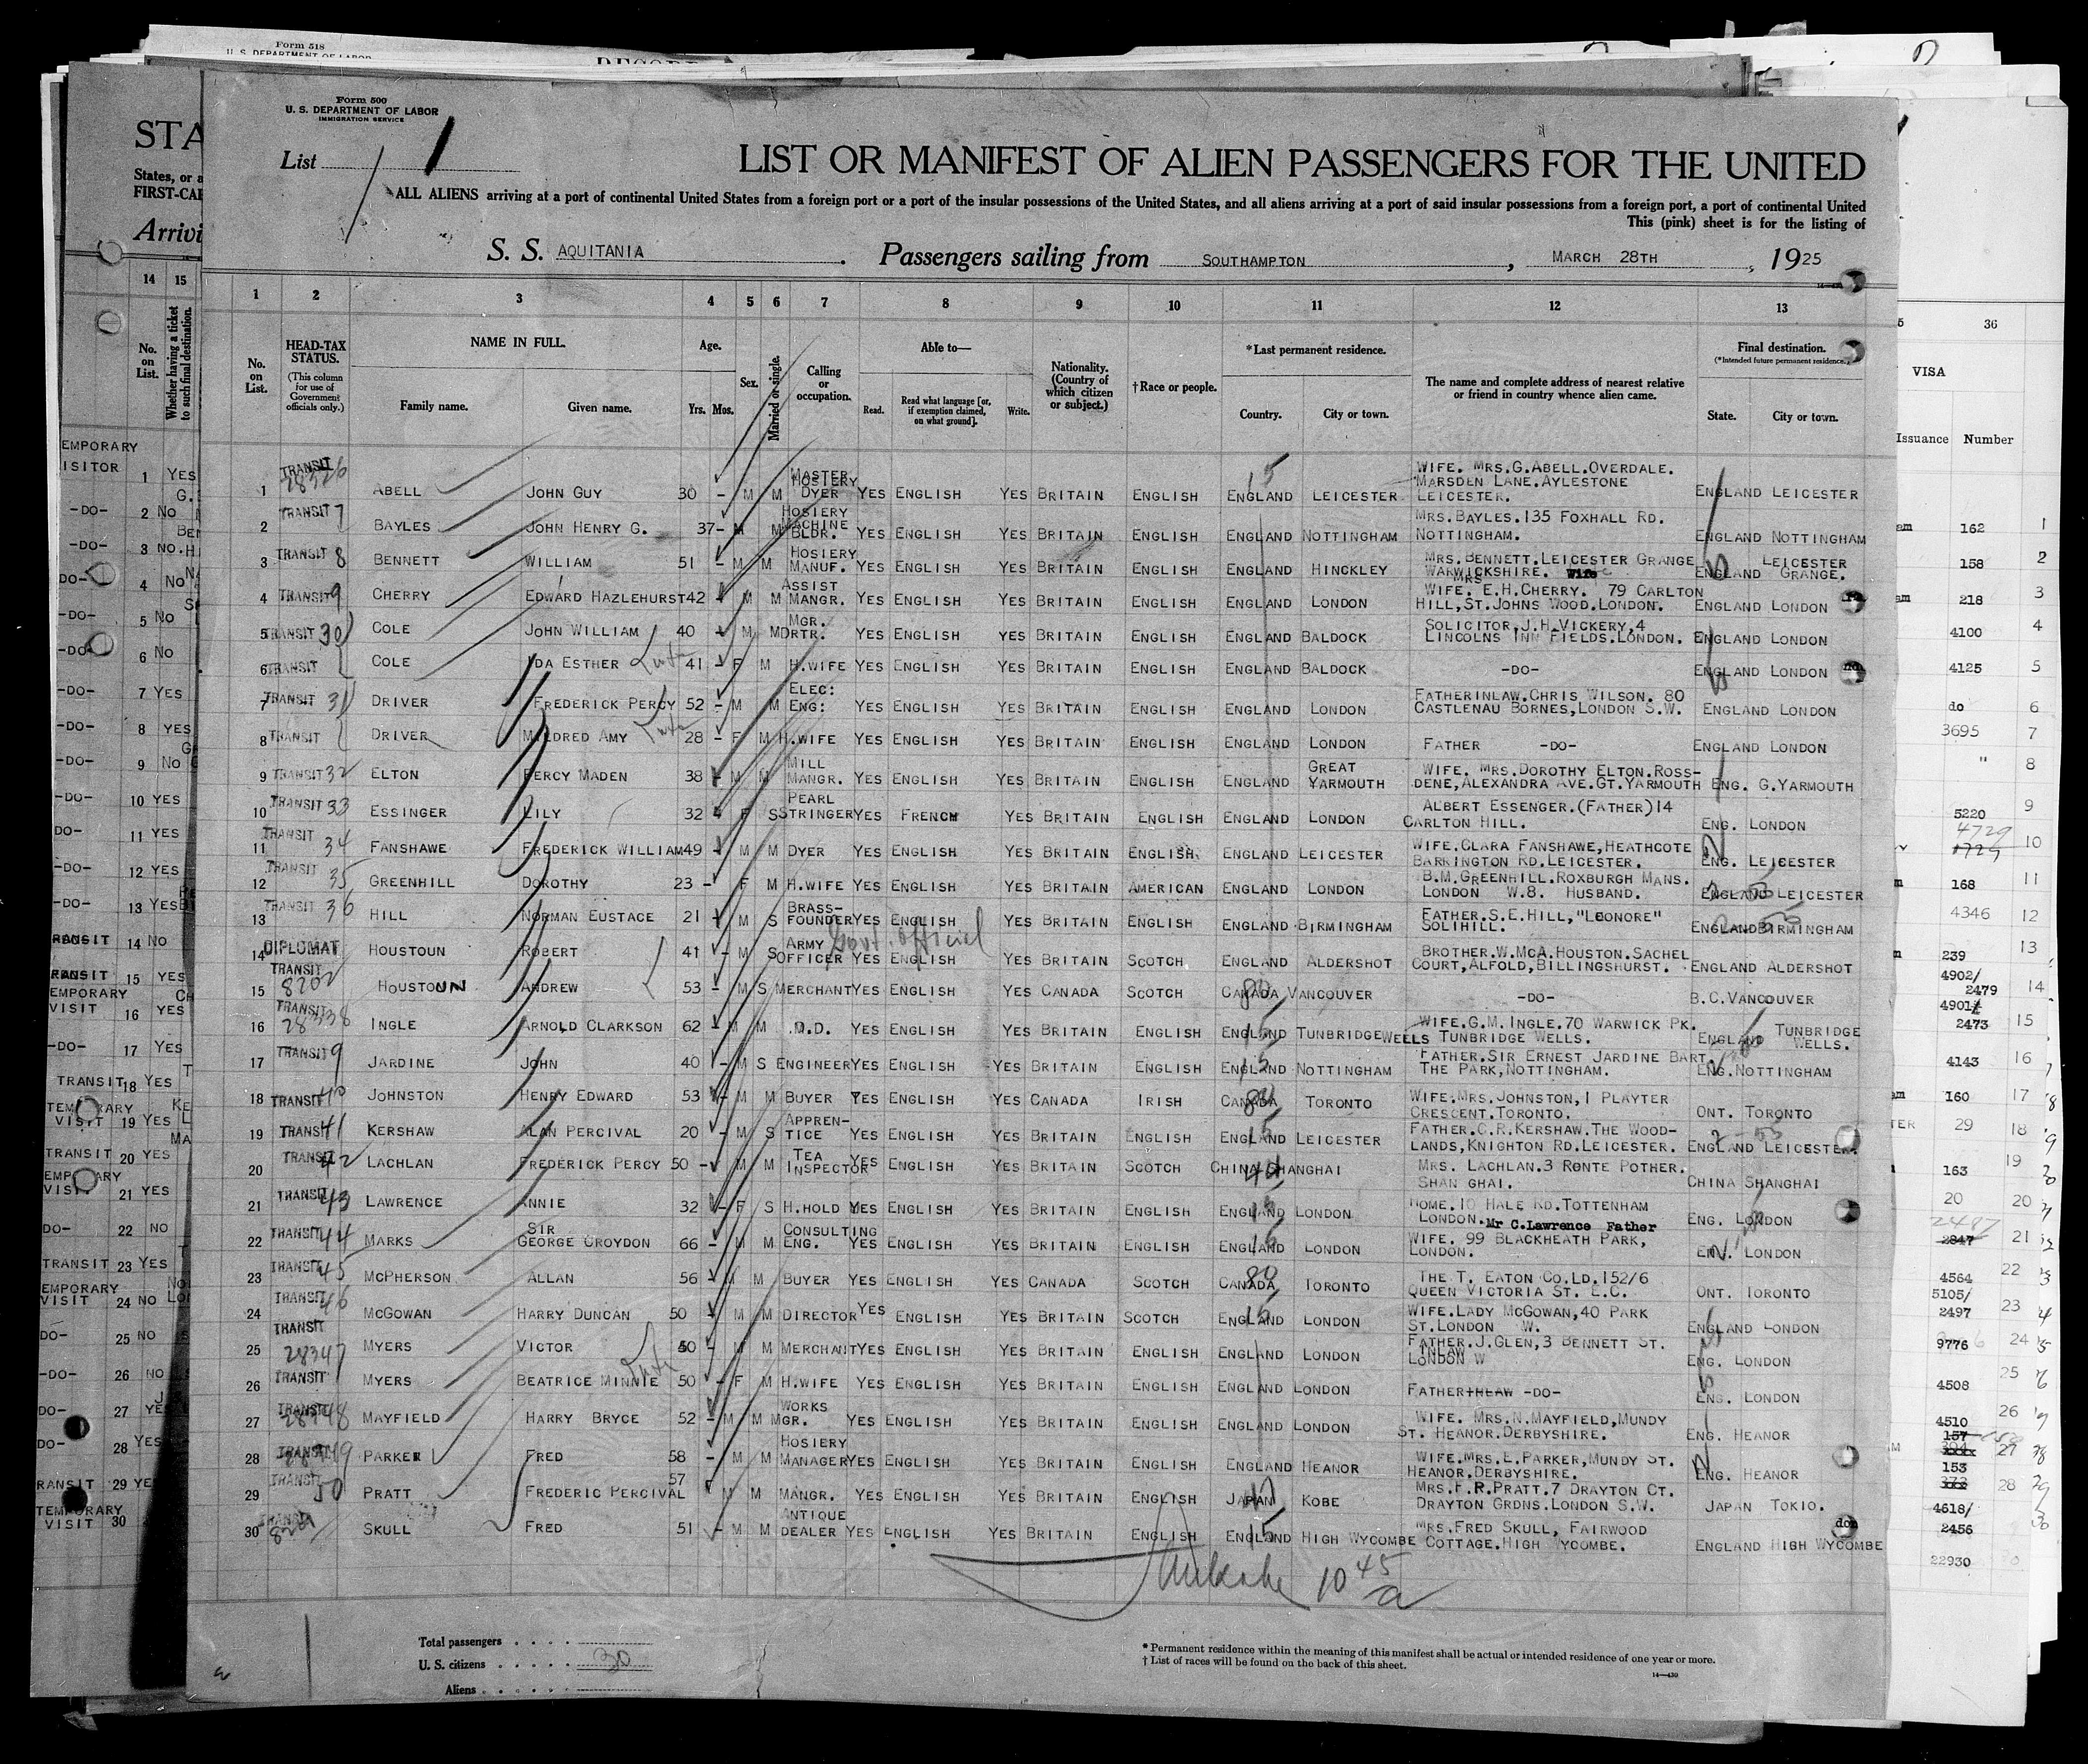 Form 518
U. S. DEPARTMENT OF LABOR
Form 500
U. S. DEPARTMENT OF LABOR
IMMIGRATION SERVICE
List 1
LIST OR MANIFEST OF ALIEN PASSENGERS FOR THE UNITED
ALL ALIENS arriving at a port of continental United States from a foreign port or a port of the insular possessions of the United States, and all aliens arriving at a port of said insular possessions from a foreign port, a port of continental United
This (pink) sheet is for the listing of
S. S. AQUITANIA. Passengers sailing from SOUTHAMPTON, MARCH 28TH, 1925
1 2 3 4 5 6 7 8 9 10 11 12 13
No. on List.
HEAD-TAX STATUS.
(This column for use of Government officials only.)
NAME IN FULL.
Family name. Given name.
Age.
Yrs. Mos.
Sex.
Married or single.
Calling or occupation.
Able to—
Read. Read what language [or, if exemption claimed, on what ground]. Write.
Nationality. (Country of which citizen or subject.)
†Race or people.
*Last permanent residence.
Country. City or town.
The name and complete address of nearest relative or friend in country whence alien came.
Final destination.
(*Intended future permanent residence.)
State. City or town.
1 TRANSIT ABELL JOHN GUY 30 - M M MASTER HOSIERY DYER YES ENGLISH YES BRITAIN ENGLISH ENGLAND LEICESTER WIFE. MRS.G.ABELL.OVERDALE. MARSDEN LANE.AYLESTONE LEICESTER. ENGLAND LEICESTER
2 TRANSIT 7 BAYLES JOHN HENRY G. 37- M M HOSIERY MACHINE BLDR. YES ENGLISH YES BRITAIN ENGLISH ENGLAND NOTTINGHAM MRS.BAYLES.135 FOXHALL RD. NOTTINGHAM. ENGLAND NOTTINGHAM
3 TRANSIT 8 BENNETT WILLIAM 51 - M M HOSIERY MANUF. YES ENGLISH YES BRITAIN ENGLISH ENGLAND HINCKLEY MRS.BENNETT.LEICESTER GRANGE WARWICKSHIRE. Wife ENGLAND LEICESTER GRANGE.
4 TRANSIT 9 CHERRY EDWARD HAZLEHURST 42 - M M ASSIST MANGR. YES ENGLISH YES BRITAIN ENGLISH ENGLAND LONDON WIFE. MRS E.H.CHERRY. 79 CARLTON HILL,ST.JOHNS WOOD.LONDON. ENGLAND LONDON
5 TRANSIT 30 COLE JOHN WILLIAM 40 - M M MGR. DRTR. YES ENGLISH YES BRITAIN ENGLISH ENGLAND BALDOCK SOLICITOR,J.H.VICKERY,4 LINCOLNS INN FIELDS.LONDON. ENGLAND LONDON
6 TRANSIT COLE IDA ESTHER 41 - F M H.WIFE YES ENGLISH YES BRITAIN ENGLISH ENGLAND BALDOCK -DO- ENGLAND LONDON
7 TRANSIT 31 DRIVER FREDERICK PERCY 52 - M M ELEC: ENG: YES ENGLISH YES BRITAIN ENGLISH ENGLAND LONDON FATHERINLAW.CHRIS WILSON. 80 CASTLENAU BORNES,LONDON S.W. ENGLAND LONDON
8 TRANSIT DRIVER MILDRED AMY 28 - F M H.WIFE YES ENGLISH YES BRITAIN ENGLISH ENGLAND LONDON FATHER -DO- ENGLAND LONDON
9 TRANSIT 32 ELTON PERCY MADEN 38 - M M MILL MANGR. YES ENGLISH YES BRITAIN ENGLISH ENGLAND GREAT YARMOUTH WIFE. MRS.DOROTHY ELTON.ROSS- DENE,ALEXANDRA AVE.GT.YARMOUTH ENG. G.YARMOUTH
10 TRANSIT 33 ESSINGER LILY 32 F S PEARL STRINGER YES FRENCH YES BRITAIN ENGLISH ENGLAND LONDON ALBERT ESSENGER.(FATHER)14 CARLTON HILL. ENG. LONDON
11 TRANSIT 34 FANSHAWE FREDERICK WILLIAM 49 - M M DYER YES ENGLISH YES BRITAIN ENGLISH ENGLAND LEICESTER WIFE.CLARA FANSHAWE,HEATHCOTE BARKINGTON RD.LEICESTER. ENG. LEICESTER
12 TRANSIT 35 GREENHILL DOROTHY 23 - F M H.WIFE YES ENGLISH YES BRITAIN AMERICAN ENGLAND LONDON B.M.GREENHILL.ROXBURGH MANS. LONDON W.8. HUSBAND. ENGLAND LEICESTER
13 TRANSIT 36 HILL NORMAN EUSTACE 21 - M S BRASS- FOUNDER YES ENGLISH YES BRITAIN ENGLISH ENGLAND BIRMINGHAM FATHER.S.E.HILL,"LEONORE" SOLIHILL. ENGLAND BIRMINGHAM
14 DIPLOMAT HOUSTOUN ROBERT 41 - M S ARMY OFFICER Govt. official YES ENGLISH YES BRITAIN SCOTCH ENGLAND ALDERSHOT BROTHER.W.McA.HOUSTON.SACHEL COURT,ALFOLD,BILLINGSHURST. ENGLAND ALDERSHOT
15 TRANSIT 8202 HOUSTOUN ANDREW 53 - M S MERCHANT YES ENGLISH YES CANADA SCOTCH CANADA VANCOUVER -DO- B.C.VANCOUVER
16 TRANSIT 28338 INGLE ARNOLD CLARKSON 62 - M M .M.D. YES ENGLISH YES BRITAIN ENGLISH ENGLAND TUNBRIDGE WELLS WIFE.G.M. INGLE.70 WARWICK PK. TUNBRIDGE WELLS. ENGLAND TUNBRIDGE WELLS.
17 TRANSIT 9 JARDINE JOHN 40 - M S ENGINEER YES ENGLISH YES BRITAIN ENGLISH ENGLAND NOTTINGHAM FATHER.SIR ERNEST JARDINE BART. THE PARK,NOTTINGHAM. ENG.NOTTINGHAM
18 TRANSIT 40 JOHNSTON HENRY EDWARD 53 - M M BUYER YES ENGLISH YES CANADA IRISH CANADA TORONTO WIFE.MRS.JOHNSTON,1 PLAYTER CRESCENT.TORONTO. ONT. TORONTO
19 TRANSIT 41 KERSHAW ALAN PERCIVAL 20 - M S APPREN- TICE YES ENGLISH YES BRITAIN ENGLISH ENGLAND LEICESTER FATHER.C.R.KERSHAW.THE WOOD- LANDS,KNIGHTON RD.LEICESTER. ENGLAND LEICESTER.
20 TRANSIT 42 LACHLAN FREDERICK PERCY 50 - M M TEA INSPECTOR YES ENGLISH YES BRITAIN SCOTCH CHINA SHANGHAI MRS. LACHLAN.3 RONTE POTHER. SHAN GHAI. CHINA SHANGHAI
21 TRANSIT 43 LAWRENCE ANNIE 32 - F S H.HOLD YES ENGLISH YES BRITAIN ENGLISH ENGLAND LONDON HOME.10 HALE RD.TOTTENHAM LONDON. Mr C.Lawrence Father ENG. LONDON
22 TRANSIT 44 MARKS SIR GEORGE CROYDON 66 - M M CONSULTING ENG. YES ENGLISH YES BRITAIN ENGLISH ENGLAND LONDON WIFE. 99 BLACKHEATH PARK, LONDON. EN. LONDON
23 TRANSIT 45 McPHERSON ALLAN 56 - M M BUYER YES ENGLISH YES CANADA SCOTCH CANADA TORONTO THE T. EATON CO.LD.152/6 QUEEN VICTORIA ST. E.C. ONT. TORONTO
24 TRANSIT 46 McGOWAN HARRY DUNCAN 50 - M M DIRECTOR YES ENGLISH YES BRITAIN SCOTCH ENGLAND LONDON WIFE.LADY McGOWAN,40 PARK ST.LONDON W. ENGLAND LONDON
25 TRANSIT 28347 MYERS VICTOR 50 - M M MERCHANT YES ENGLISH YES BRITAIN ENGLISH ENGLAND LONDON FATHER INLAW.J.GLEN,3 BENNETT ST. LONDON W ENG. LONDON
26 TRANSIT MYERS BEATRICE MINNIE 50 - F M H.WIFE YES ENGLISH YES BRITAIN ENGLISH ENGLAND LONDON FATHER INLAW -DO- ENG. LONDON
27 TRANSIT 28348 MAYFIELD HARRY BRYCE 52 - M M WORKS MGR. YES ENGLISH YES BRITAIN ENGLISH ENGLAND LONDON WIFE. MRS.N.MAYFIELD,MUNDY ST. HEANOR.DERBYSHIRE. ENG. HEANOR
28 TRANSIT 28349 PARKER FRED 58 - M M HOSIERY MANAGER YES ENGLISH YES BRITAIN ENGLISH ENGLAND HEANOR WIFE.MRS.E.PARKER,MUNDY ST. HEANOR.DERBYSHIRE. ENG. HEANOR
29 TRANSIT 50 PRATT FREDERIC PERCIVAL 57 M M MANGR. YES ENGLISH YES BRITAIN ENGLISH JAPAN KOBE MRS.F.R.PRATT.7 DRAYTON CT. DRAYTON GRDNS.LONDON S.W. JAPAN TOKIO.
30 TRANSIT SKULL FRED 51 - M M ANTIQUE DEALER YES ENGLISH YES BRITAIN ENGLISH ENGLAND HIGH WYCOMBE MRS.FRED SKULL, FAIRWOOD COTTAGE.HIGH WYCOMBE. ENGLAND HIGH WYCOMBE
10 45 a
Total passengers
U. S. citizens 30
Aliens
* Permanent residence within the meaning of this manifest shall be actual or intended residence of one year or more.
† List of races will be found on the back of this sheet.
14—430
STA
States, or a
FIRST-CAB
Arrivi
14 15
No. on List.
Whether having a ticket to such final destination.
EMPORARY
ISITOR 1 YES
-DO- 2 NO
-DO- 3 NO.
DO- 4 NO
5 NO
-DO- 6 NO
-DO- 7 YES
-DO- 8 YES
-DO- 9 NO
-DO- 10 YES
DO- 11 YES
-DO- 12 YES
-DO- 13 YES
TRANSIT 14 NO
TRANSIT 15 YES
EMPORARY
VISIT 16 YES
-DO- 17 YES
TRANSIT 18 YES
TEMPORARY
VISIT 19 YES
TRANSIT 20 YES
VISIT 21 YES
DO- 22 NO
TRANSIT 23 YES
EMPORARY
VISIT 24 NO
DO- 25 NO
-DO- 26 NO
DO- 27 YES
DO- 28 YES
RANSIT 29 YE
TEMPORARY
VISIT 30
36
VISA
Issuance Number
162 1
158 2
218 3
4100 4
4125 5
do 6
3695 7
" 8
5220 9
4729 10
168 11
4346 12
239 13
4902/
2479 14
4901
2473 15
4143 16
160 17
29 18
163 19
20 20
2847 21
4564 22
5105/
2497 23
9776 24
4508 25
4510 26
157
27
153
28
4618/
2456
22930